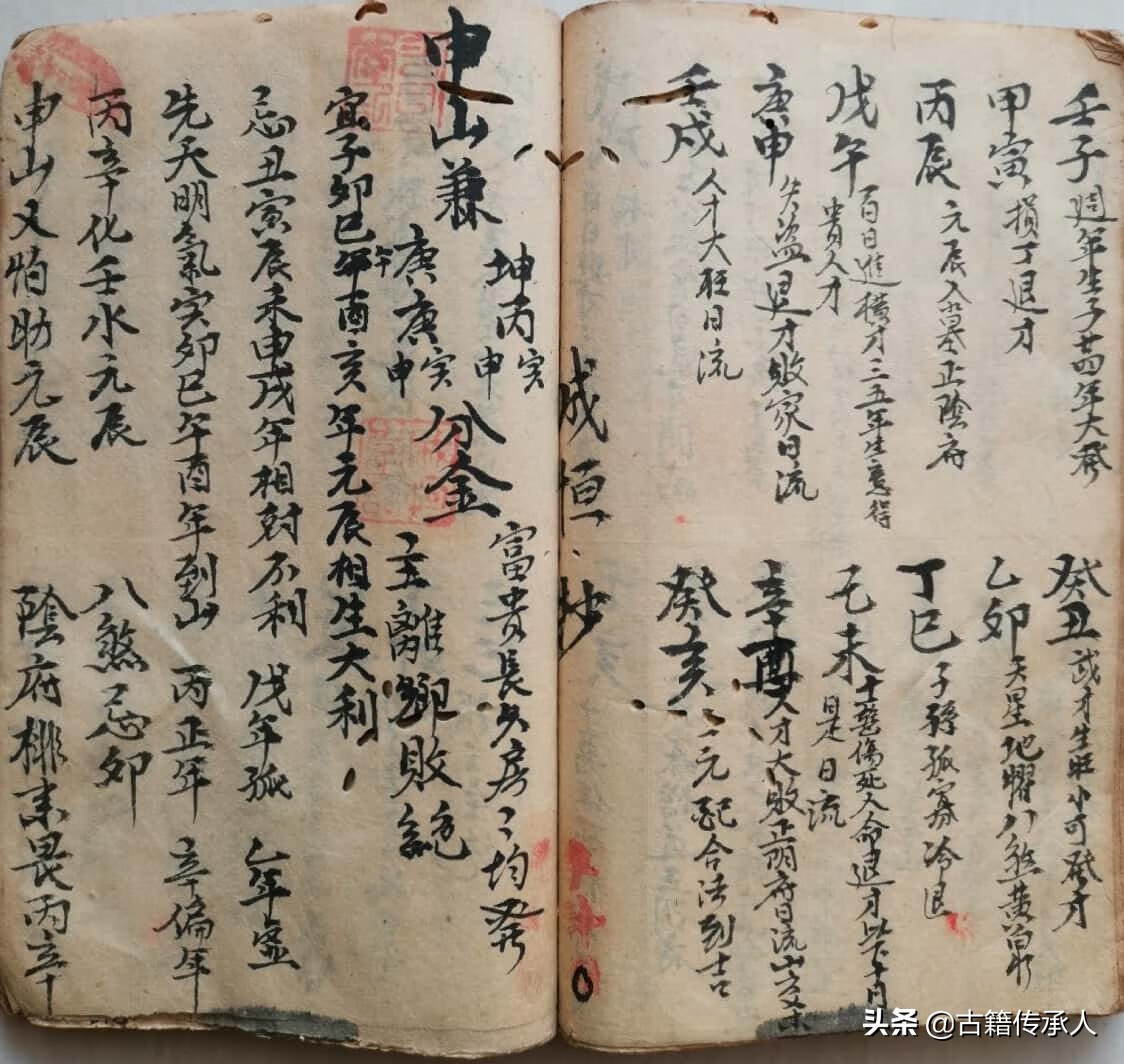 壬子週年生子廿四年大發
癸丑 武才生旺小可發才
甲寅損丁退才
乙卯 天星地曜八煞黃泉
丙辰 元辰入墓正陰府
丁巳 子孫孤寡冷退
戊午 百日進橫才三五年生意得
貴人才
己未 十惡傷死人命退才 以下十日
是日流
庚申 失盜退才敗家日流
辛酉 人才大敗正陰府日流山
壬戌 人才大旺日流
癸亥 一元配合活到吉
成恒抄
申山兼
坤丙寅
申
庚庚寅
午申
分金
富貴長久房々均發
主離鄉敗絕
宜子卯巳午酉亥年元辰相生大利
忌丑寅辰未申戌年相尅不利 戊年孤 乙年虛
先天明氣寅卯巳午酉年到山 丙正年 辛偏年
丙辛化壬水元辰 八煞忌卯
申山又怕助元辰 陰府排來畏丙辛
头条 @古籍传承人